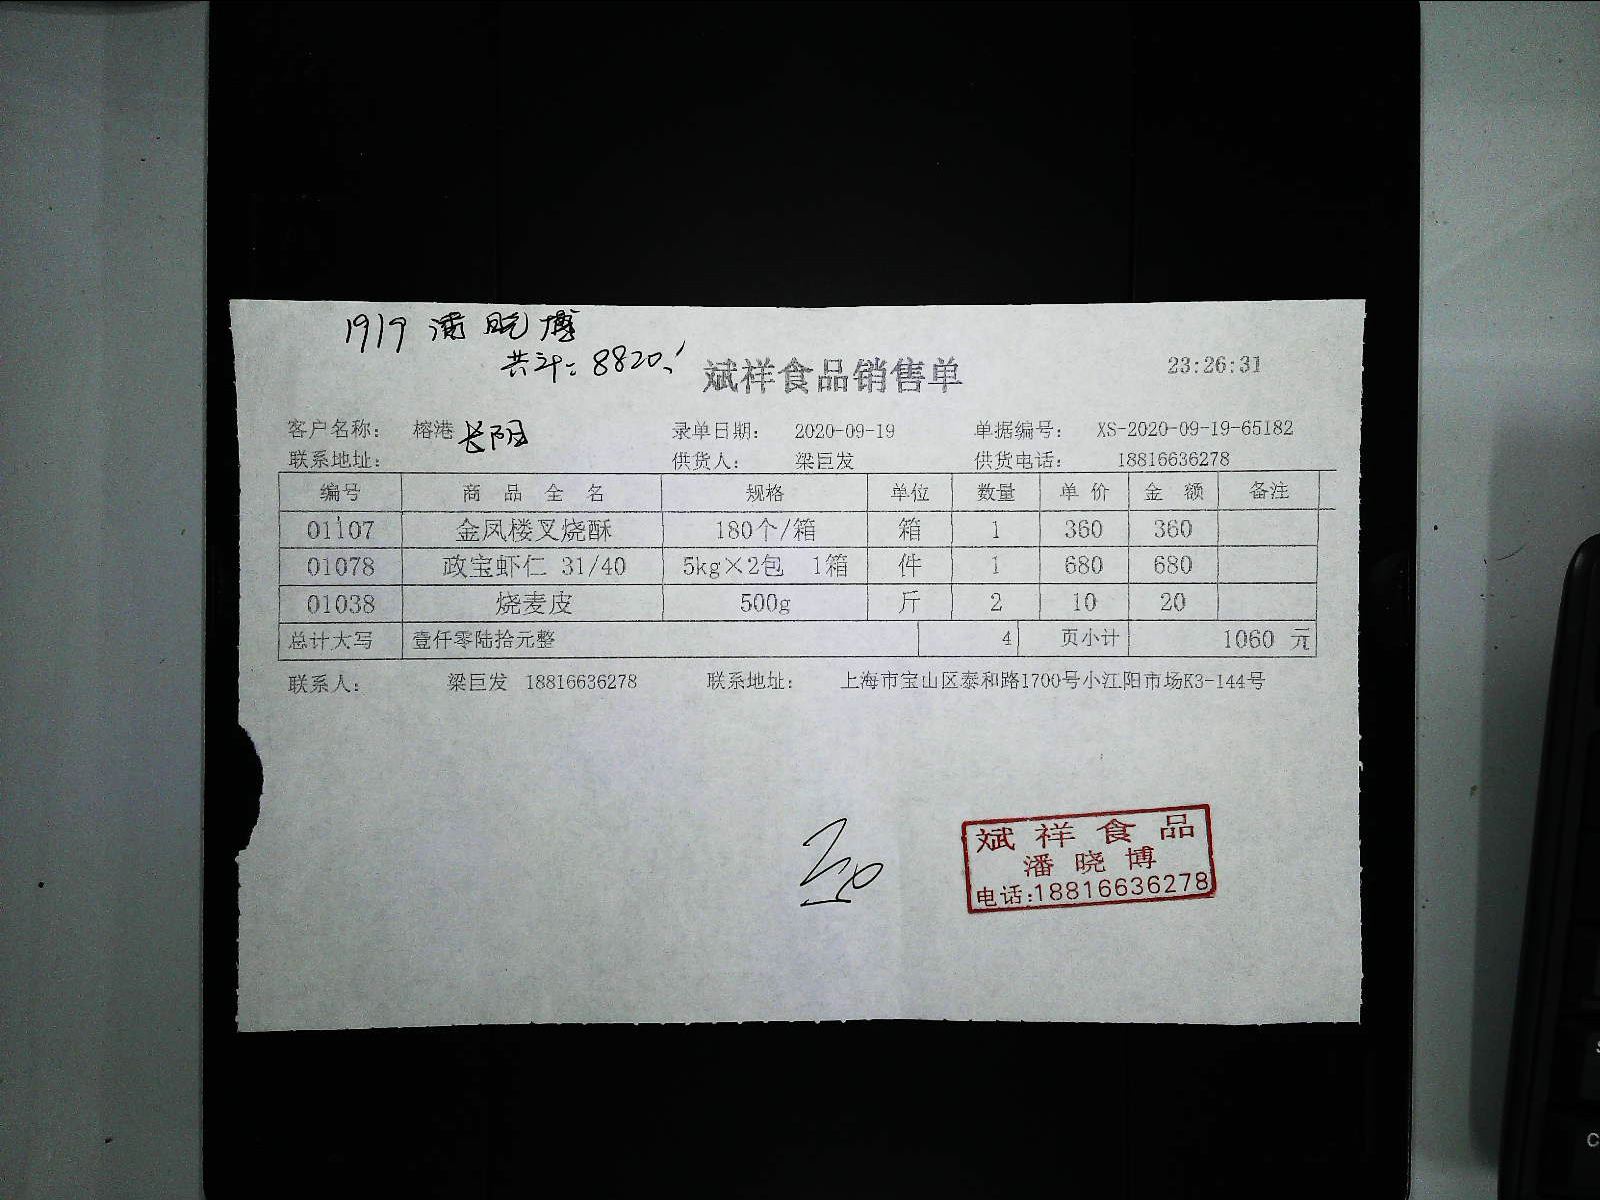 1919 潘晓博
共计: 8820、
斌祥食品销售单 23:26:31
客户名称: 榕港 长阳 录单日期: 2020-09-19 单据编号: XS-2020-09-19-65182
联系地址: 供货人: 梁巨发 供货电话: 18816636278
编号 商品全名 规格 单位 数量 单价 金额 备注
01107 金凤楼叉烧酥 180个/箱 箱 1 360 360
01078 政宝虾仁 31/40 5kg×2包 1箱 件 1 680 680
01038 烧麦皮 500g 斤 2 10 20
总计大写 壹仟零陆拾元整 4 页小计 1060 元
联系人: 梁巨发 18816636278 联系地址: 上海市宝山区泰和路1700号小江阳市场K3-144号
斌祥食品
潘晓博
电话:18816636278